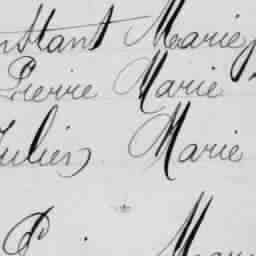 nstant Marie
Pierre Marie
Julien Marie